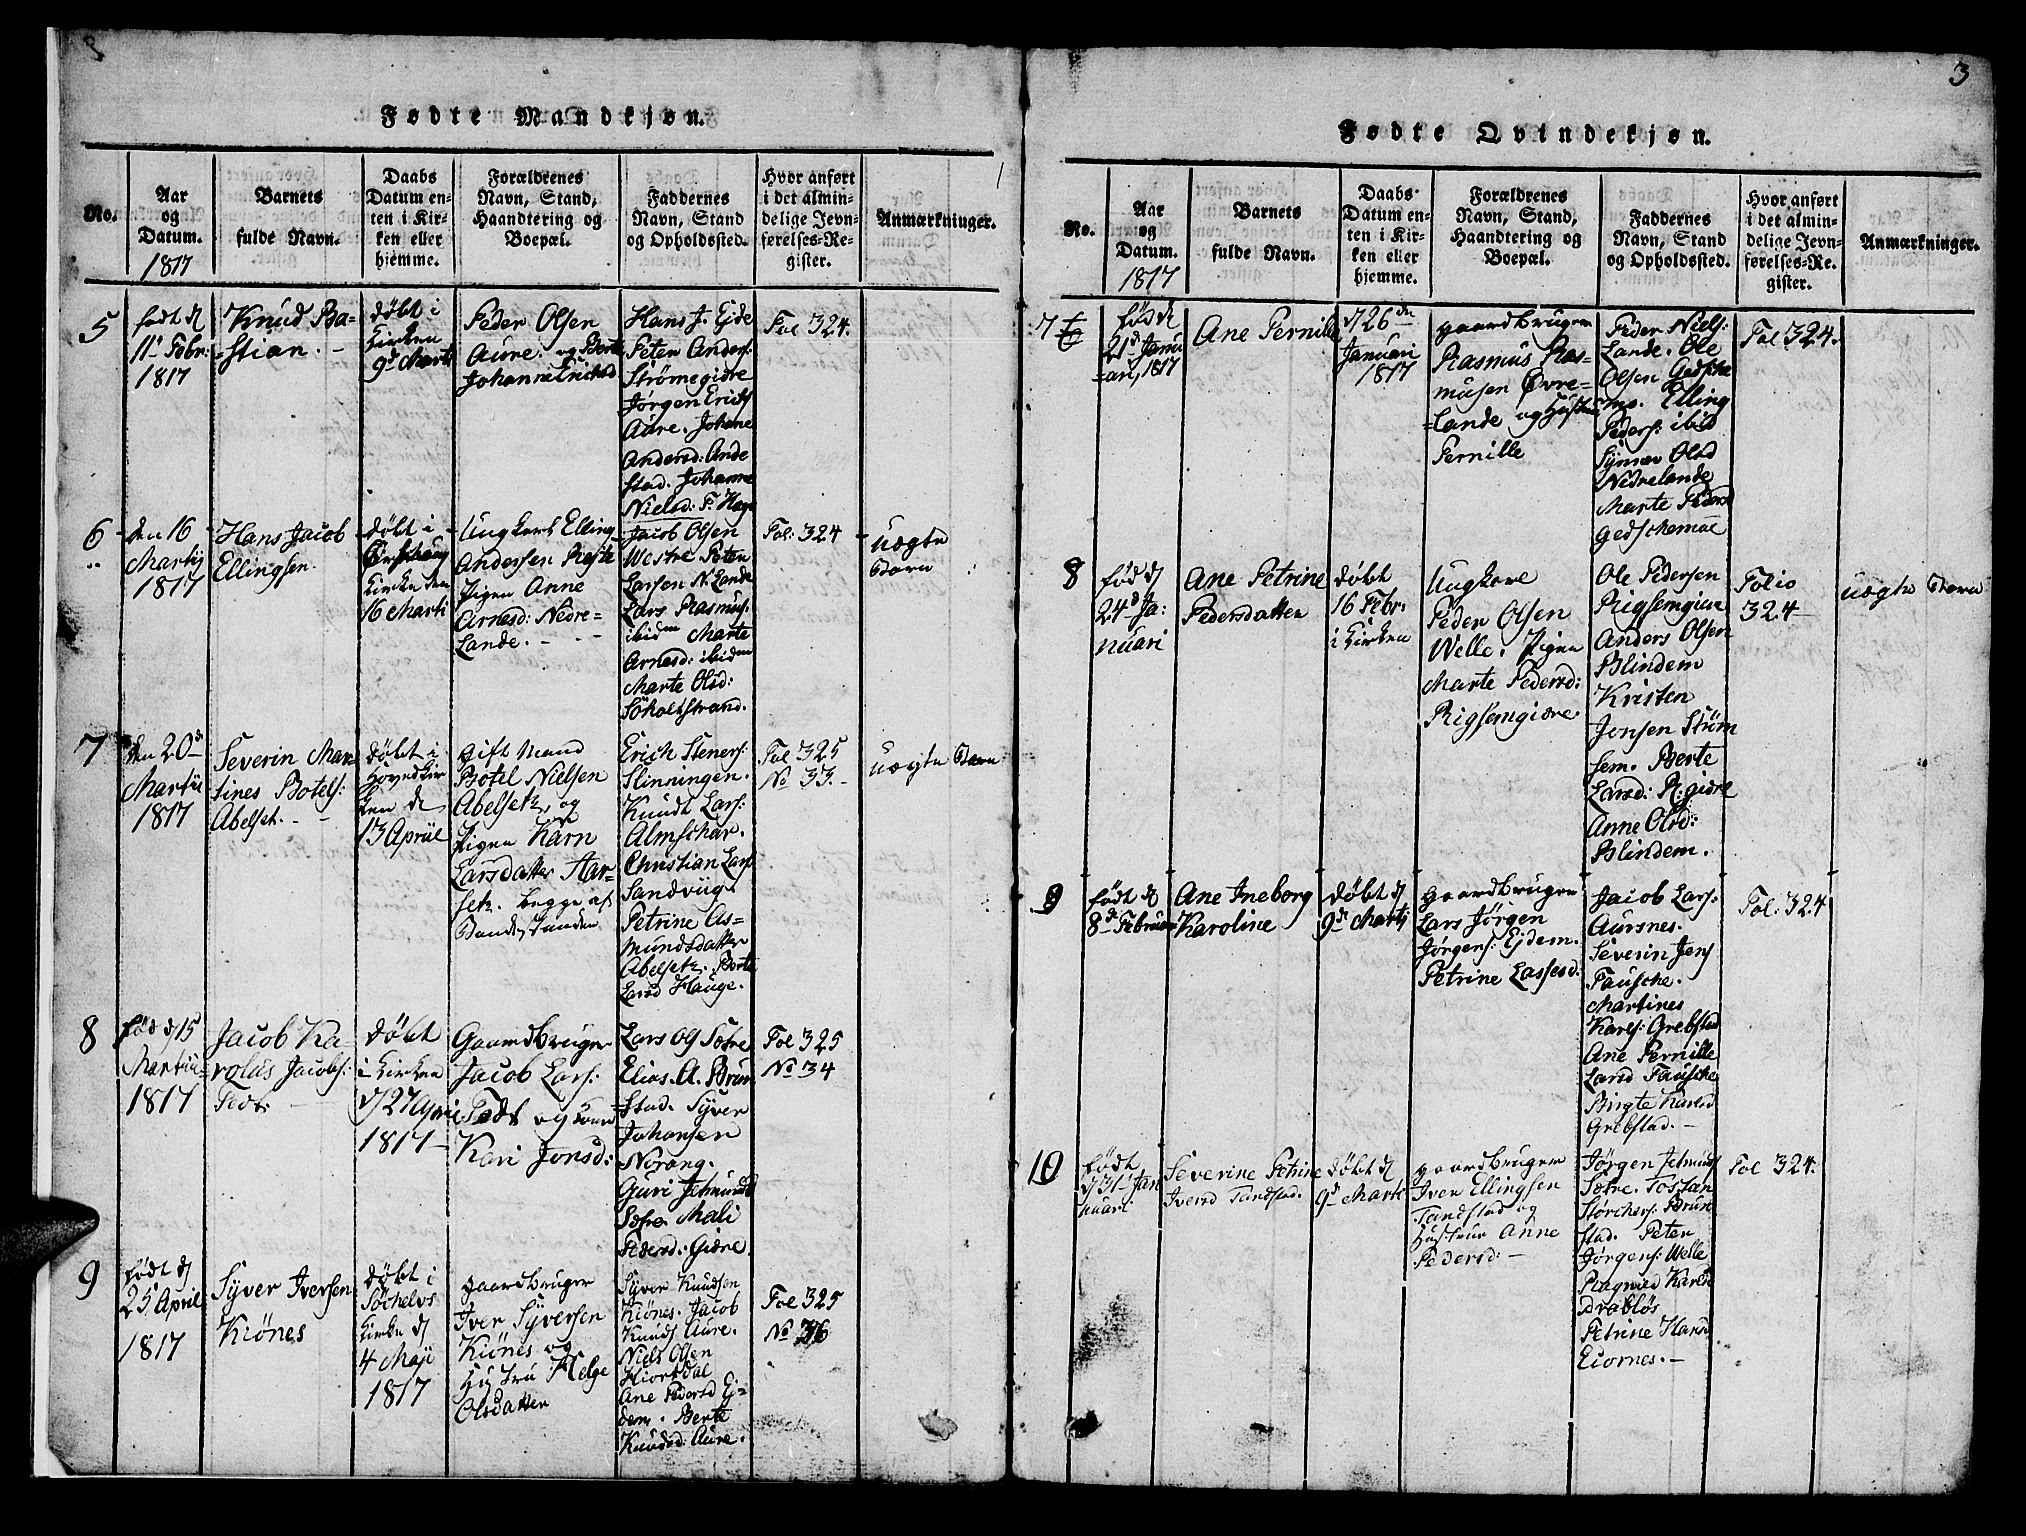 3
Fødte Mandkjøn.
No.
Aar
og
Datum.
1817
Barnets
fulde Navn.
Daabs
Datum en-
ten i Kir-
ken eller
hjemme.
Forældrenes
Navn, Stand,
Haandtering og
Boepæl.
Faddernes
Navn, Stand
og Opholdssted.
Hvor anført
i det almin-
delige Jevn-
førelses-Re-
gister.
Anmærkninger.
5
født d
11' Febr:
1817
Knud Ba-
=stian. -
døbt i
Kirken
9d Marti
Peder Olsen
Aure. og Berte
Johanne Ericksd
Hans J. Ejde
Peter Anders:
Strømegidre
Jørgen Erichs
Aure. Johane
Andersd: Ande
stad. Johanne
Nielsd: F. Hage
Fol 324.
6
den 16
Martij
1817
Hans Jacob
Ellingsen.
døbt i
Kirke den
16 Marti
Ungkarl Elling
Andersen
Pigen Anne
Arnesd: Nedre-
Lande. -
Jacob Olsen
Westre Peter
Larsen N. Lande
Lars Rasmus:
ibidem Marte
Arnesd: ibidem
Marte Olsd:
Søholtstrand.
Fol: 324
uægte
Barn
7
den 20d
Martii
1817
Severin Mar
tines Botels:
Abelset. -
døbt i
Hovedkir
ken d
13 Apriil
Gift Mand
Botel Nielsen
Abelsetz og
Pigen Karn
Larsdatter Aar-
setz. begge af
Bondestanden
Erich Steners:
Slinningen.
Knudt Lars:
Almschar.
Christian Lars
Sandviigs
Petrine As=
mundsdatter
Abelsetz. Berte
Larsd Hauge.
Fol 325
No 33.-
uægte Barn
8
fød d 15
Martii
1817
Jacob Ka
rolus Jacobs:
døbt
i Kirken
d 27 April
1817
Gaardbruger
Jacob Lars:
og Kone
Kari Jonsd:
Lars Ols Sætre
Elias. A. Brun
stad. Syver
Johansen
Norang.
Guri Jetmunds
Sætre. Mali
Pedersd: Gidre.
Fol 325
No 34
9
født d
25 April
1817
Syver Iversen
Kiönes
døbt i
Söchelvs
Kirke d
4 Maji
1817
Gaardbruger
Iver Syversen
Kiönes og
Hustru Helge
Olsdatter
Syver Knudsen
Kiönes. Jacob
Knuds Aure.
Niels Olsen
Hiortdal
Ane Pedersd Ej=
dem. Berte
Knudsd: Aure.
Fol 325
No 36
3
Fødte Qvindekjøn.
No.
Aar
og
Datum.
1817
Barnets
fulde Navn.
Daabs-
Datum en-
ten i Kir-
ken eller
hjemme.
Forældrenes
Navn, Stand,
Haandtering og
Boepæl.
Faddernes
Navn, Stand
og Opholdssted.
Hvor anført
i det almin-
delige Jevn-
førelses-Re-
gister.
Anmærkninger.
7
fød d
21d Janu
=ari, 1817
Ane Pernille
d 26de
Januari
1817
Gaardbruger
Rasmus Ras-
musen Øvre-
=lande og Hustru
Pernille
Peder Niels:
Lande. Ole
Olsen Gedsche
mo. Elling
Peders: ibid
Synnev Olsd
Nedrelande
Marte Pedersd
Gedschemoe
Fol 324.
8
fød d
24d Ja:
nuari
Ane Petrine
Pedersdatter
døbt
16 Febr:
i Kirken
Ungkarl
Peder Olsen
Welle. Pigen
Marte Pedersd:
Rigsemgidre
Ole Pedersen
Rigsemgidre
Anders Olsen
Blindem
Kristen
Jensen Stüm
sem. Berte
Larsd: R: gidre
Anne Olsd:
Blindem.
Folio
324
uægte Barn
9
født d
8de Februar
Ane Ineborg
Karoline
døbt d
9de Marti
Gaardbruger
Lars Jørgen
Jørgens: Ejdem.
Petrine Lassesd.
Jacob Lars:
Aursnes.
Severin Jens
Fausche.
Martines
Karls: Grebstad
Ane Pernille
Larsd Fausche
Birgte Karlsd
Grebstad. -
Fol: 324
10
født
d 31' Jan
uari
Severine Petrine
Iversd Tandstad.
døbt d
9d Marti
Gaardbruger
Iver Ellingsen
Tandstad og
Hustrue Anne
Pedersd: -
Jørgen Jetmunds
Sætre. Tostan
Störchers: Brun
stad. Peter
Jørgens: Welle
Ragnild Karlsd
Drabløs
Petrine Hansd
Eiornes. -
Fol 324.